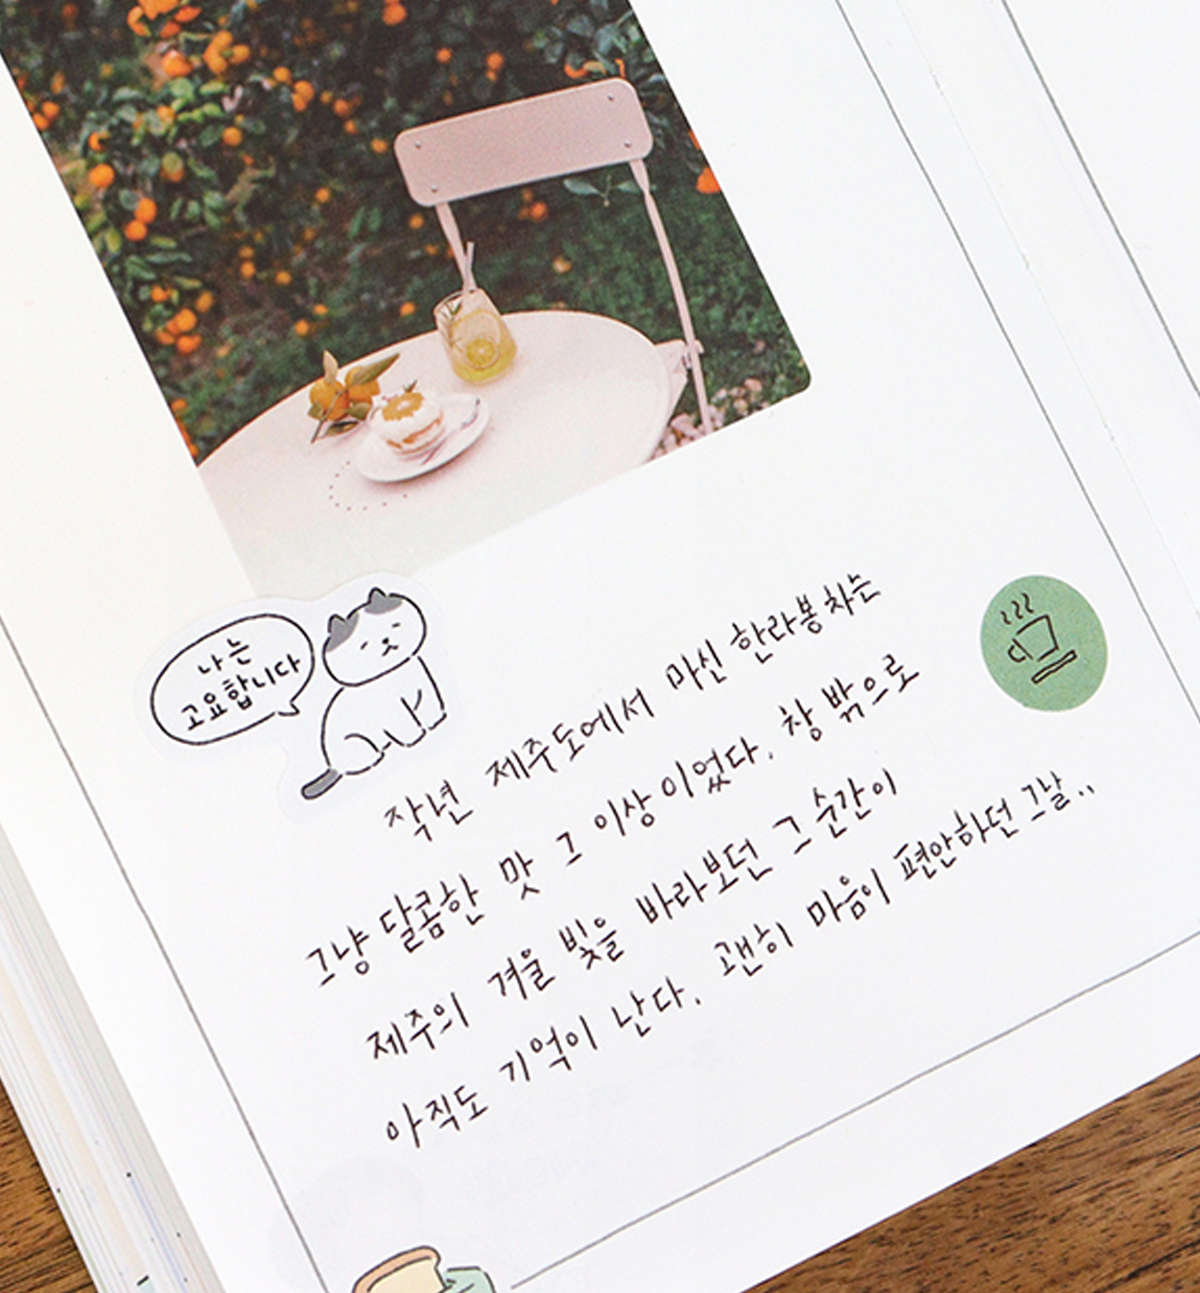 나는
고요합니다
작년 제주도에서 마신 한라봉 차는
그냥 달콤한 맛 그 이상이었다. 창 밖으로
제주의 겨울 빛을 바라보던 그 순간이
아직도 기억이 난다. 괜히 마음이 편안하던 그날..